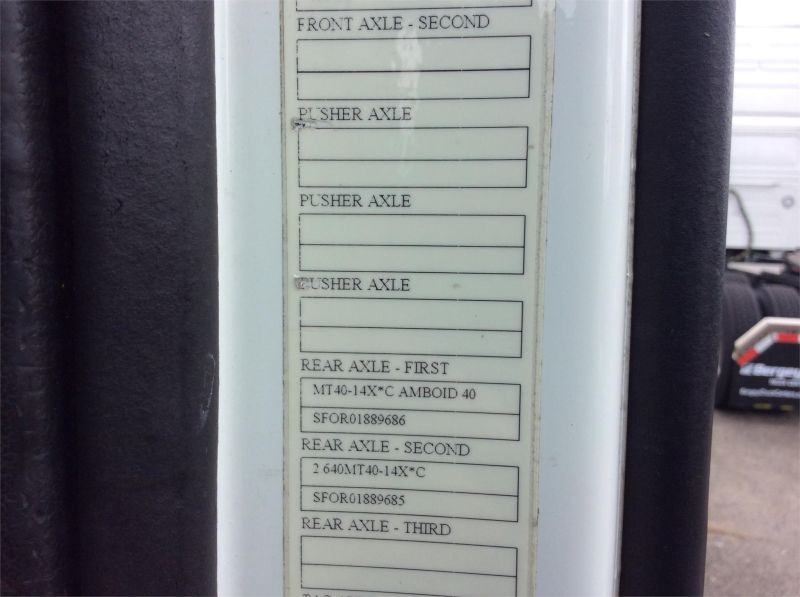 FRONT AXLE - SECOND
PUSHER AXLE
PUSHER AXLE
PUSHER AXLE
REAR AXLE - FIRST
MT40-14X*C AMBOID 40
SFOR01889686
REAR AXLE - SECOND
2 640MT40-14X*C
SFOR01889685
REAR AXLE - THIRD